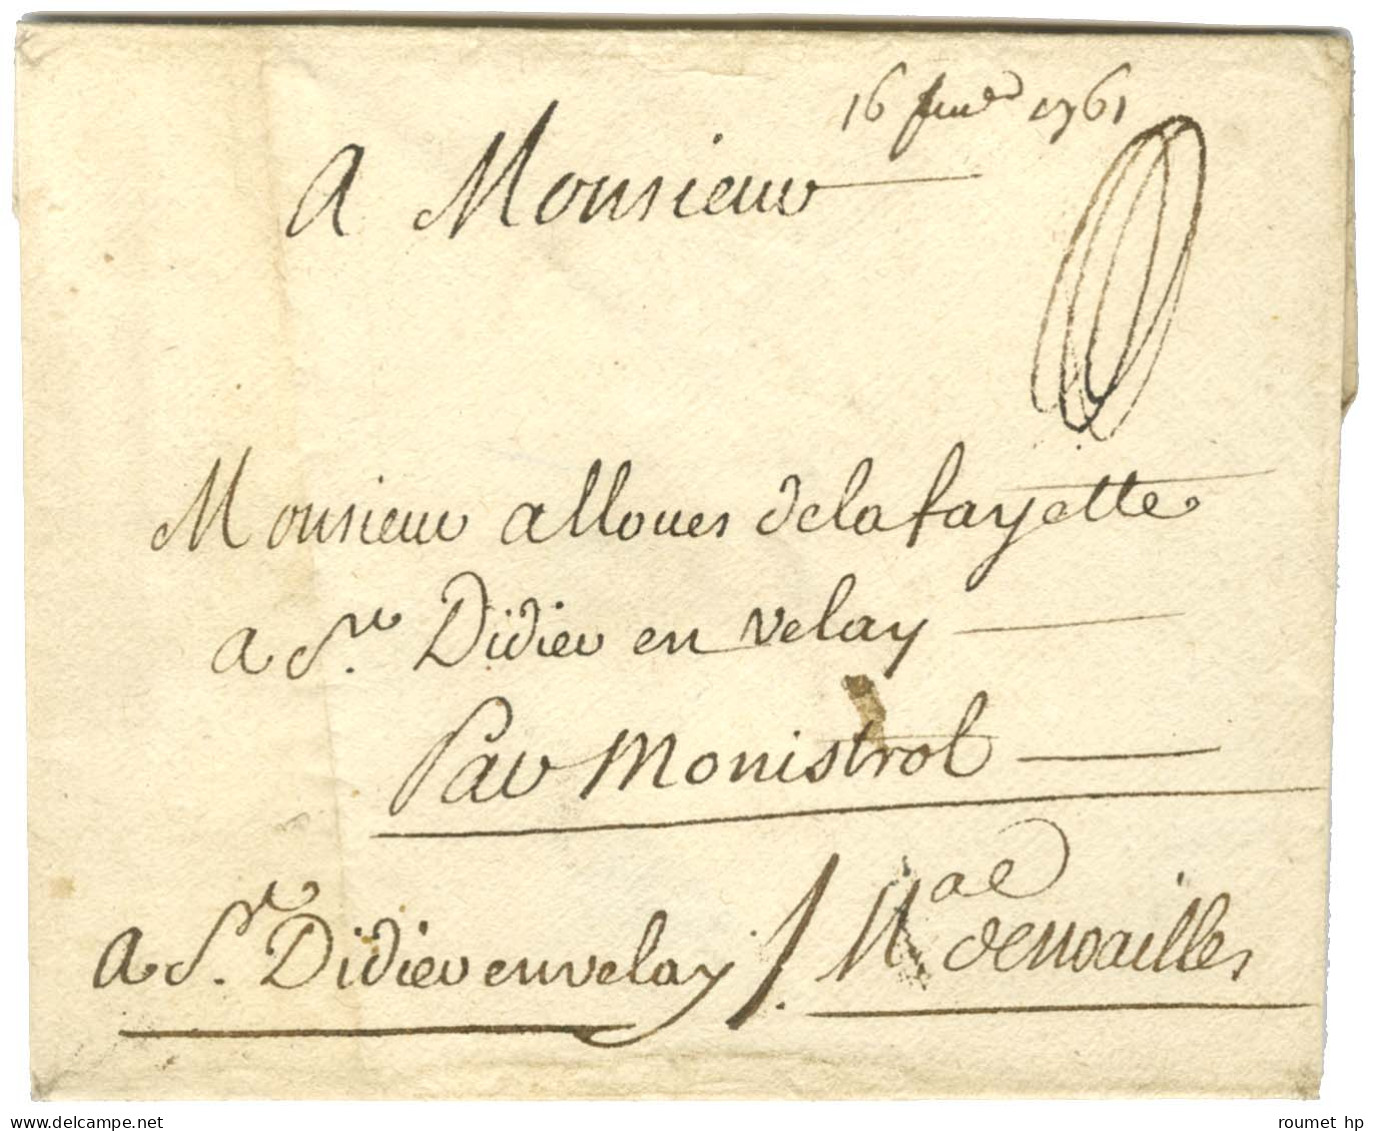 16 1761
A Monsieur
Monsieur alloues de la fayette
a St. Didier en velay
Par Monistrol
a St. Didier en velay / Mal de noailles
www.delcampe.net
roumet hp